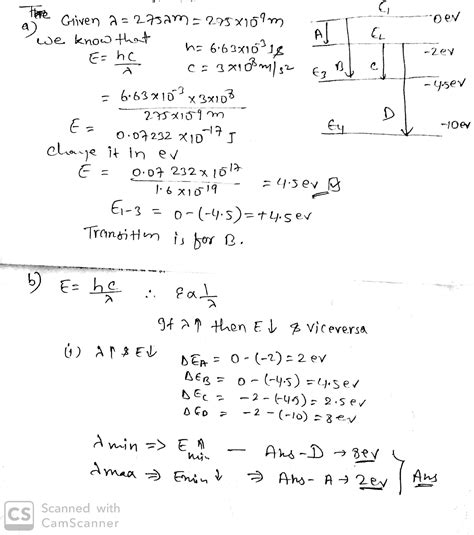 a) Given λ = 275nm = 275×10⁻⁹m
we know that
h = 6.63×10⁻³
E = hc/λ
c = 3×10⁸m/s²
= 6.63×10⁻³ ×3×10⁸
275×10⁻⁹m
E = 0.07232 ×10⁻¹⁷ J
change it in ev
E = 0.07232×10¹⁷
1.6×10⁻¹⁹
= 4.5ev
E₁₋₃ = 0-(-4.5)=+4.5ev
Transition is for B.
E₁
0ev
A
E₂
-2ev
E₃ B
C
-4.5ev
E₄
D
-10ev
b) E= hc/λ ∴ E α 1/λ
If λ↑ then E↓ & viceversa
(i) λ↑ & E↓
ΔE_A = 0-(-2)=2ev
ΔE_B = 0-(-4.5)=4.5ev
ΔE_C = -2-(-4.5) = 2.5ev
ΔE_D = -2-(-10)=8ev
λmin => E min — Ans-D → 8ev
λmax => Emin↓ => Ans- A → 2ev
Ans
CS Scanned with
CamScanner